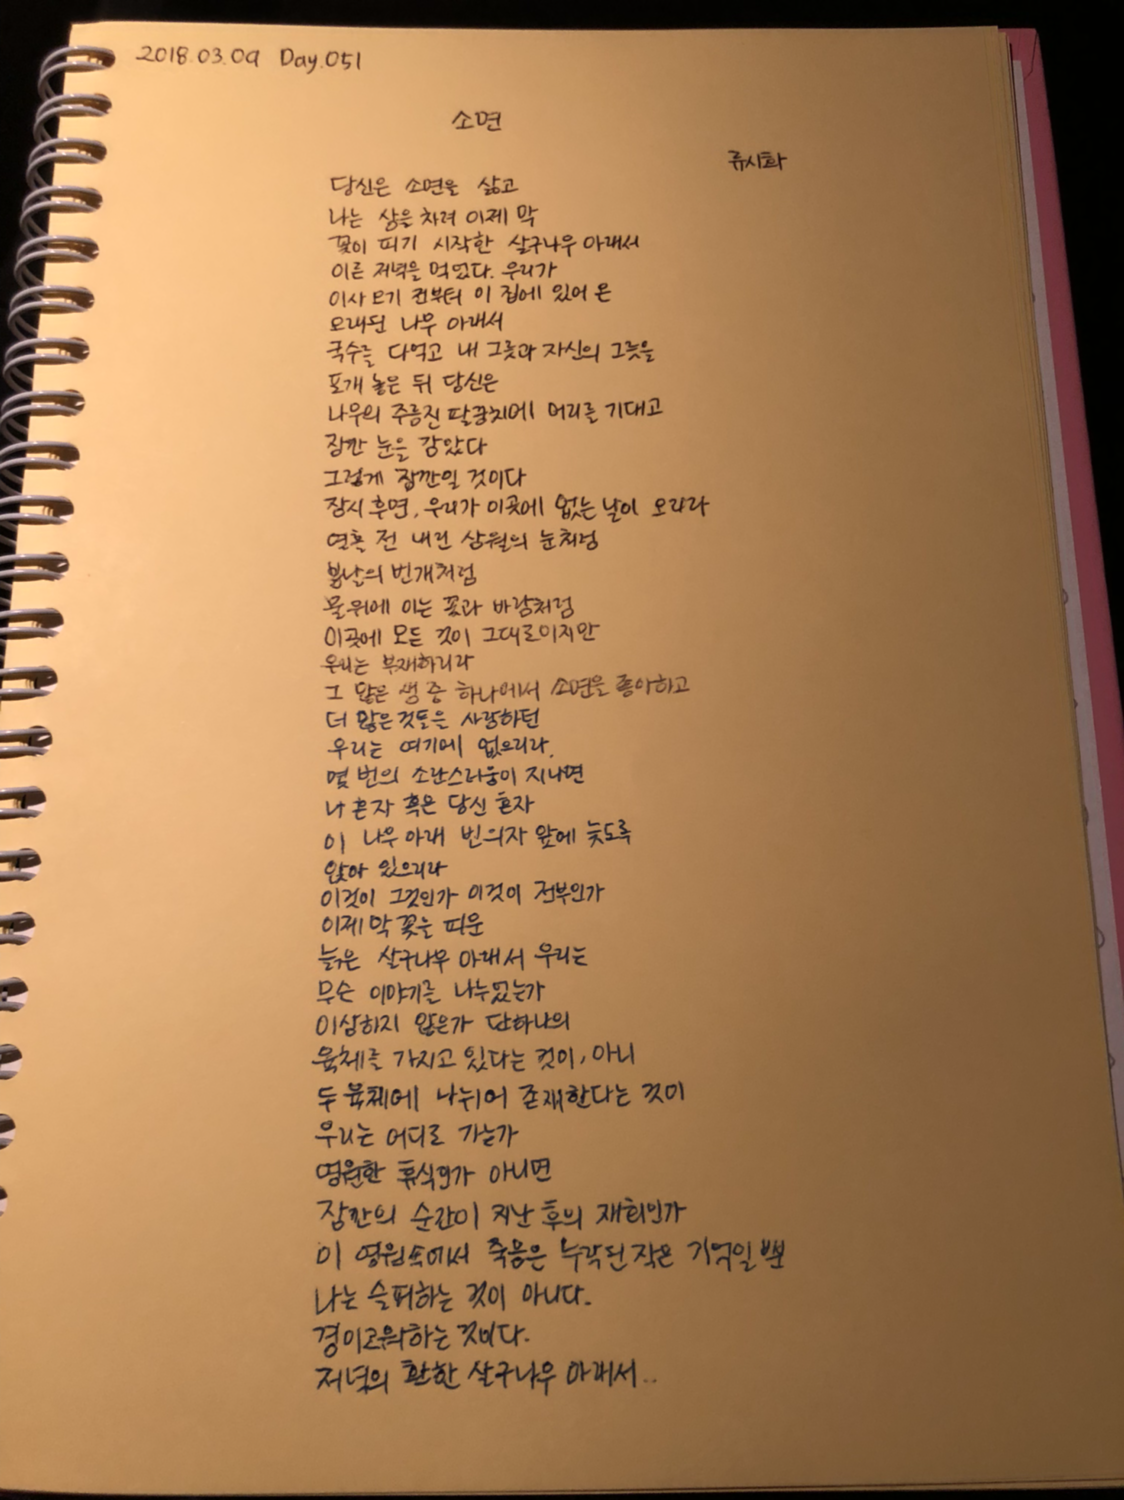 2018.03.09 Day.051
소면
류시화
당신은 소면을 삶고
나는 상을 차려 이제 막
꽃이 피기 시작한 살구나무 아래서
이른 저녁을 먹었다. 우리가
이사 오기 전부터 이 집에 있어 온
오래된 나무 아래서
국수를 다 먹고 내 그릇과 자신의 그릇을
포개 놓은 뒤 당신은
나무의 주름진 팔꿈치에 머리를 기대고
잠깐 눈을 감았다
그렇게 잠깐일 것이다
잠시 후면, 우리가 이곳에 없는 날이 오리라
열흘 전 내린 삼월의 눈처럼
봄날의 번개처럼
물위에 이는 꽃과 바람처럼
이곳에 모든 것이 그대로이지만
우리는 부재하리라
그 많은 생 중 하나에서 소면을 좋아하고
더 많은 것들은 사랑하던
우리는 여기에 없으리라.
몇 번의 소란스러움이 지나면
나 혼자 혹은 당신 혼자
이 나무 아래 빈 의자 앞에 늦도록
앉아 있으리라
이것이 그것인가 이것이 전부인가
이제 막 꽃을 피운
늙은 살구나무 아래서 우리는
무슨 이야기를 나누었는가
이상하지 않은가 단 하나의
육체를 가지고 있다는 것이, 아니
두 육체에 나뉘어 존재한다는 것이
우리는 어디로 가는가
영원한 휴식인가 아니면
잠깐의 순간이 지난 후의 재회인가
이 영원 속에서 죽음은 누락된 작은 기억일 뿐
나는 슬퍼하는 것이 아니다.
경이로워하는 것이다.
저녁의 환한 살구나무 아래서..